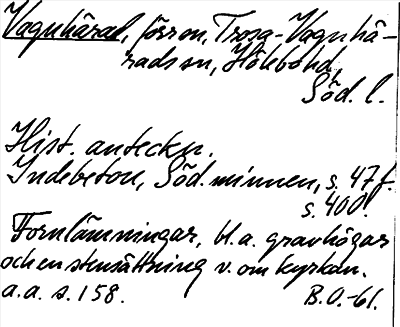 Vagnhärad, förr on, Trosa-Vagnhä-
rads sn, Hölebohd,
Söd. l.
Hist. anteckn.
Indebetou, Söd. minnen, s. 47 f.
s. 400.
Fornlämningar, bl. a. gravhögar
och en stensättning v. om kyrkan.
a. a. s. 158.
B.O.-61.